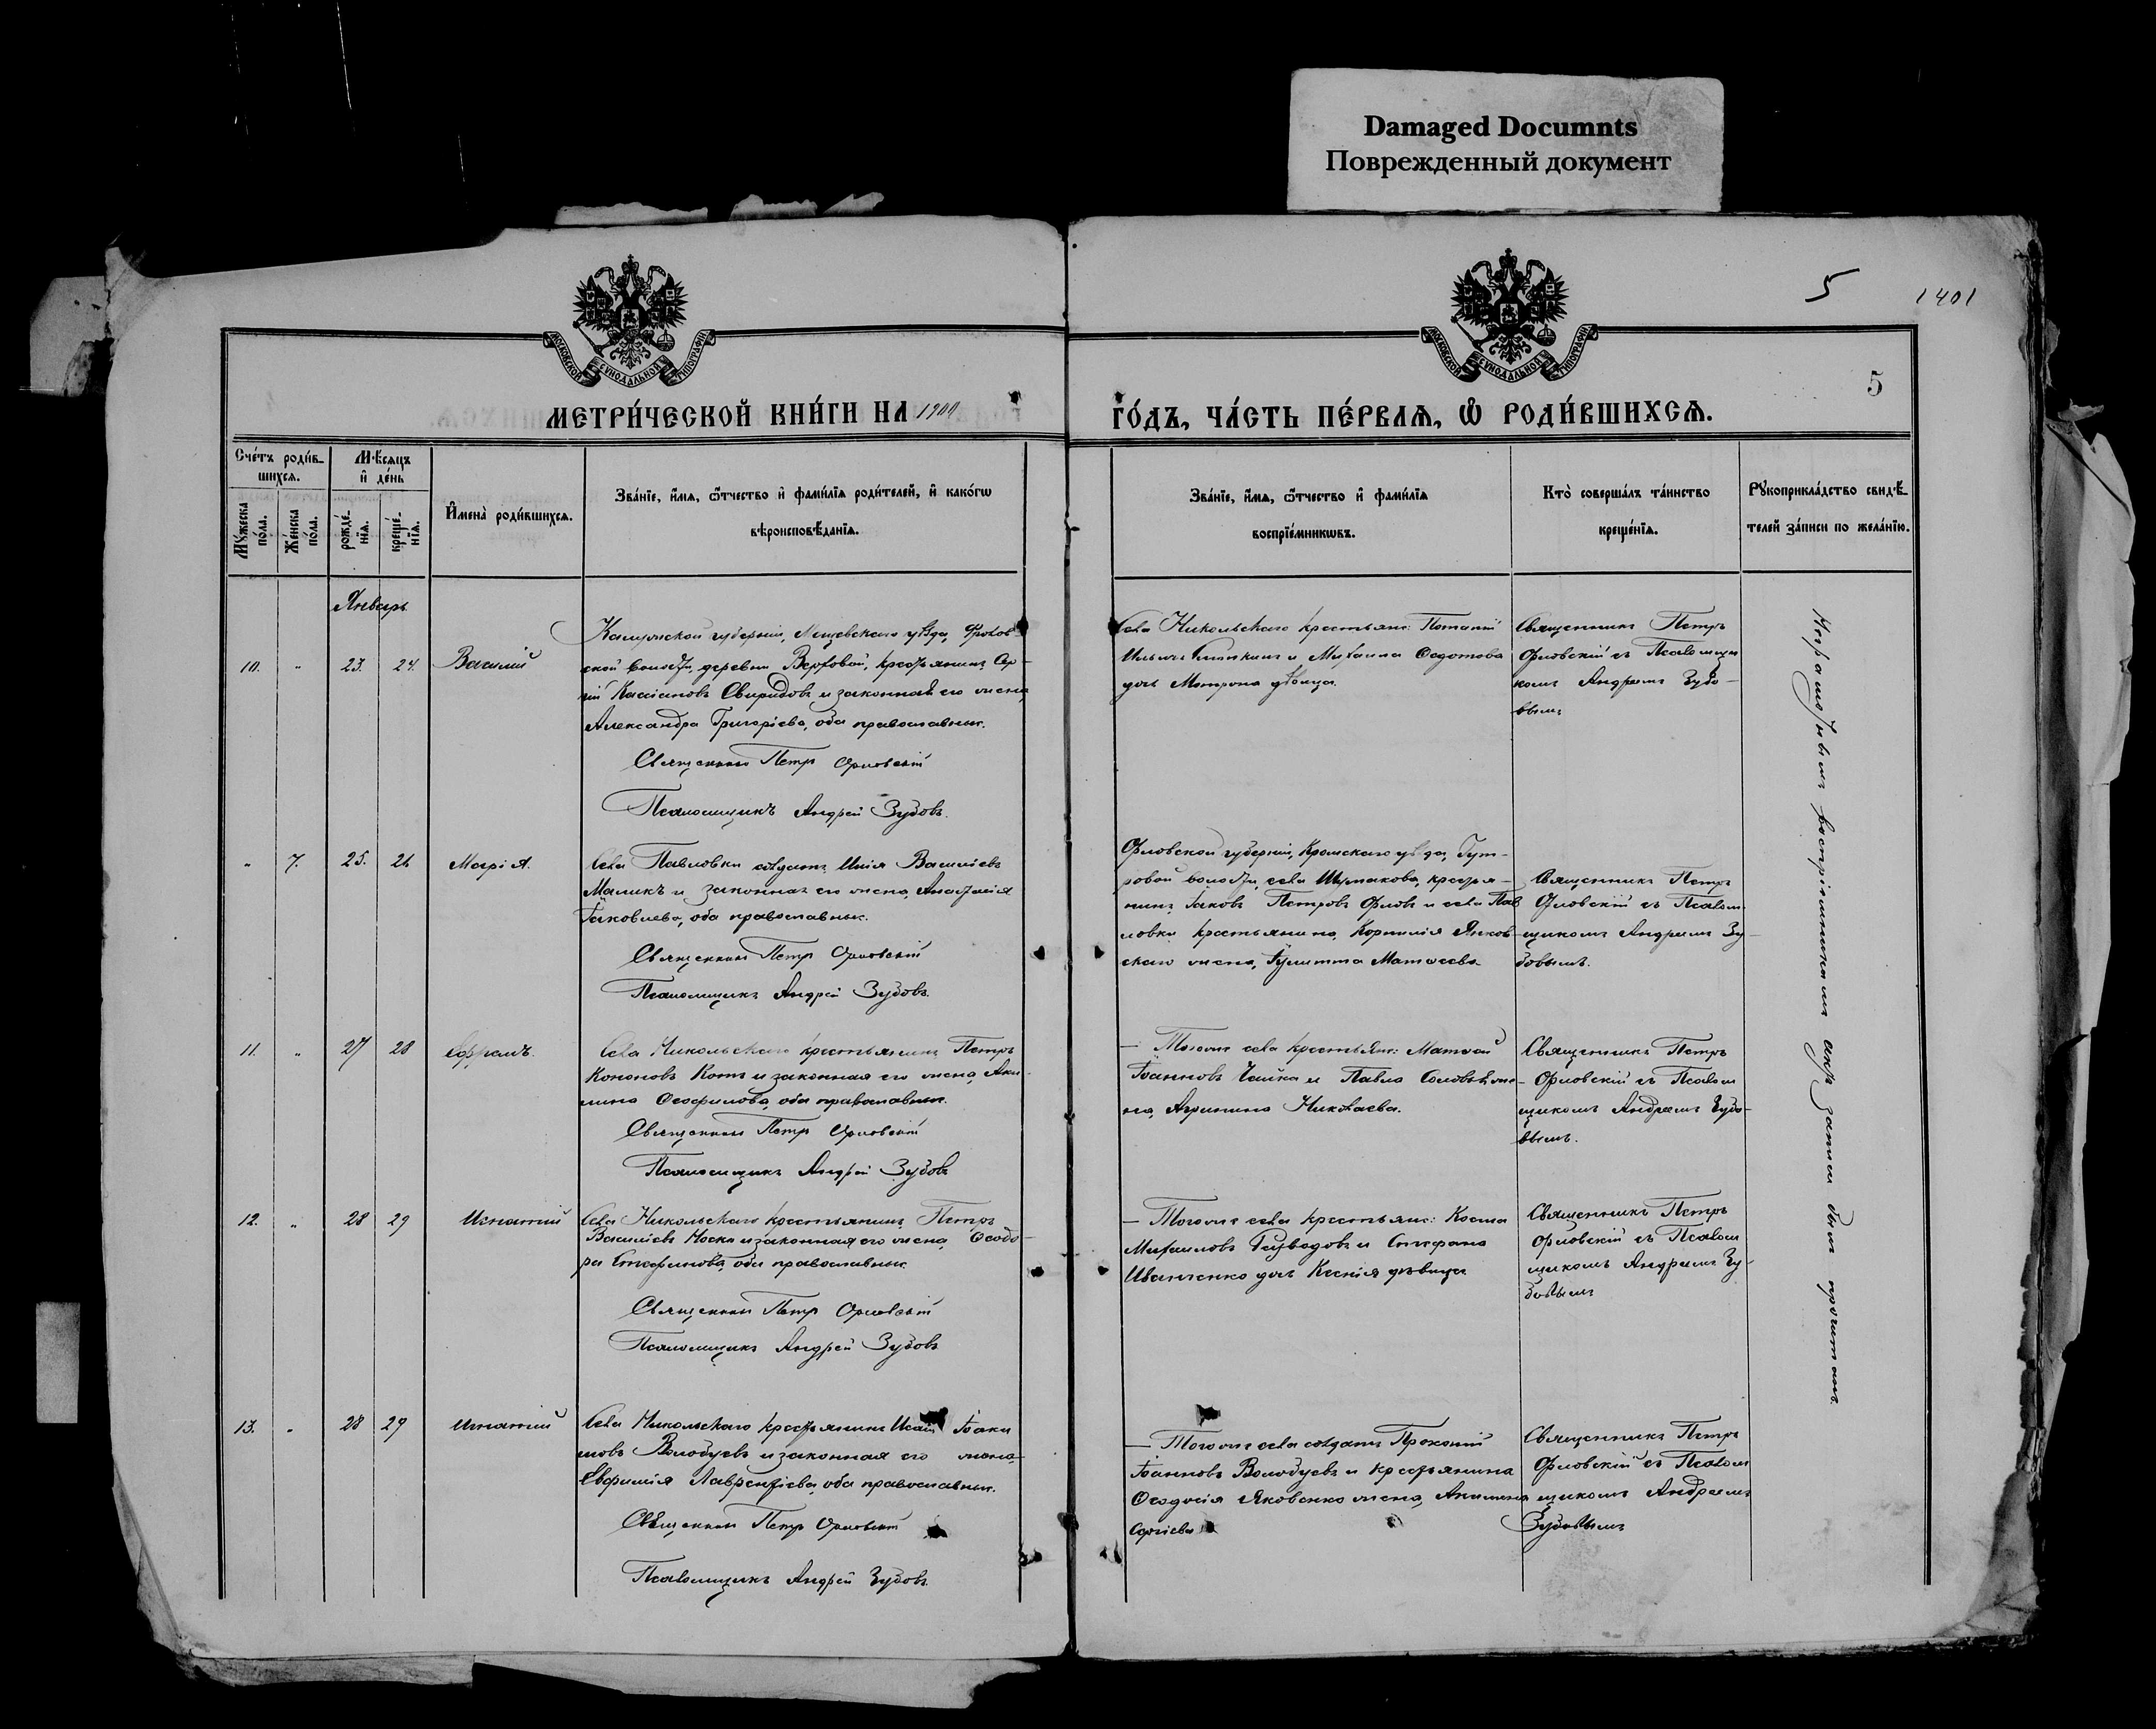 Damaged Documnts
Поврежденный документ
5
1401
МОСКОВСКОЙ СѴНОДАЛЬНОЙ ТИПОГРАФІИ
МОСКОВСКОЙ СѴНОДАЛЬНОЙ ТИПОГРАФІИ
5
МЕТРИ́ЧЕСКОЙ КНИ́ГИ НА 1900
ГО́ДЪ, ЧА́СТЬ ПЕ́РВАЯ, Ѡ҆ РОДИ́ВШИХСЯ.
Сче́тъ роди́в-
шихся.
Мѣ́сяцъ
и҆ де́нь
Мꙋ́жеска
по́ла.
Же́нска
по́ла.
рожде́-
нїя.
креще́-
нїя.
И҆мена̀ роди́вшихся.
Зва́нїе, и҆́мя, ѻ҆́тчество и҆ фами́лїя роди́телей, и҆ како́гѡ
вѣроисповѣ́данїя.
Зва́нїе, и҆́мя, ѻ҆́тчество и҆ фами́лїя
воспрїе́мникѡвъ.
Кто̀ соверша́лъ та́инство
креще́нїя.
Рꙋкоприкла́дство свидѣ́-
телей за́писи по жела́нїю.
Январь
10. " 23. 24. Василій
Калужской губерніи, Мещевскаго уѣзда,
ской волости, деревни Верховой, крестьянинъ Сер-
гій Кассіановъ Свиридовъ и законная его жена,
Александра Григоріева, оба православные.
Священникъ Петръ Орловскій
Псаломщикъ Андрей Зубовъ.
Села Никольскаго крестьян: Потапій
Ильичъ и Михаила Ѳедотова
дочь Матрона дѣвица.
Священникъ Петръ
Орловскій съ Псаломщи
комъ Андреемъ Зубо-
вымъ
" 7. 25. 26 Марія.
Села Павловки солдатъ Илія Васильевъ
Маликъ и законная его жена, Анастасія
Іаковлева, оба православные.
Священникъ Петръ Орловскій
Псаломщикъ Андрей Зубовъ.
Орловской губерніи, Кромскаго уѣзда, Гут-
ровой волости, села Шумакова, крестья-
нинъ Іаковъ Петровъ Орловъ и села Пав
ловки крестьянина, Корнилія Янков-
скаго жена, Іулитта Матѳеева
Священникъ Петръ
Орловскій съ Псалом
щикомъ Андреемъ Зу-
бовымъ.
11. " 27 28 Ефремъ.
Села Никольскаго крестьянинъ Петръ
Кононовъ Котъ и законная его жена, Аки-
лина Ѳеофилова, оба православные.
Священникъ Петръ Орловскій
Псаломщикъ Андрей Зубовъ
— Того же села крестьян: Матѳей
Іоанновъ Чайка и Павла Соловья же-
на, Агрипина Николаева.
Священникъ Петръ
Орловскій съ Псалом
щикомъ Андреемъ Зубо-
вымъ.
12. " 28 29 Игнатій
Села Никольскаго крестьянинъ Петръ
Васильевъ Носко и законная его жена, Ѳеодо-
ра Стефанова, оба православные.
Священникъ Петръ Орловскій
Псаломщикъ Андрей Зубовъ
— Того же села крестьян: Косма
Михаиловъ и Стефана
Иванченко дочь Ксенія дѣвица
Священникъ Петръ
Орловскій съ Псалом
щикомъ Андреемъ Зу-
бовымъ
13. " 28 29 Игнатій
Села Никольскаго крестьянинъ Исаія Іоаки
мовъ Волобуевъ и законная его жена,
Евфимія Лаврентіева, оба православные.
Священникъ Петръ Орловскій
Псаломщикъ Андрей Зубовъ.
— Того же села солдатъ Прокопій
Іоанновъ Волобуевъ и крестьянина
Ѳеодосія Яковенко жена, Акилина
Сергіева
Священникъ Петръ
Орловскій съ Псалом
щикомъ Андреемъ
Зубовымъ
Неграмотнымъ воспріемникамъ актъ записи былъ прочитанъ.